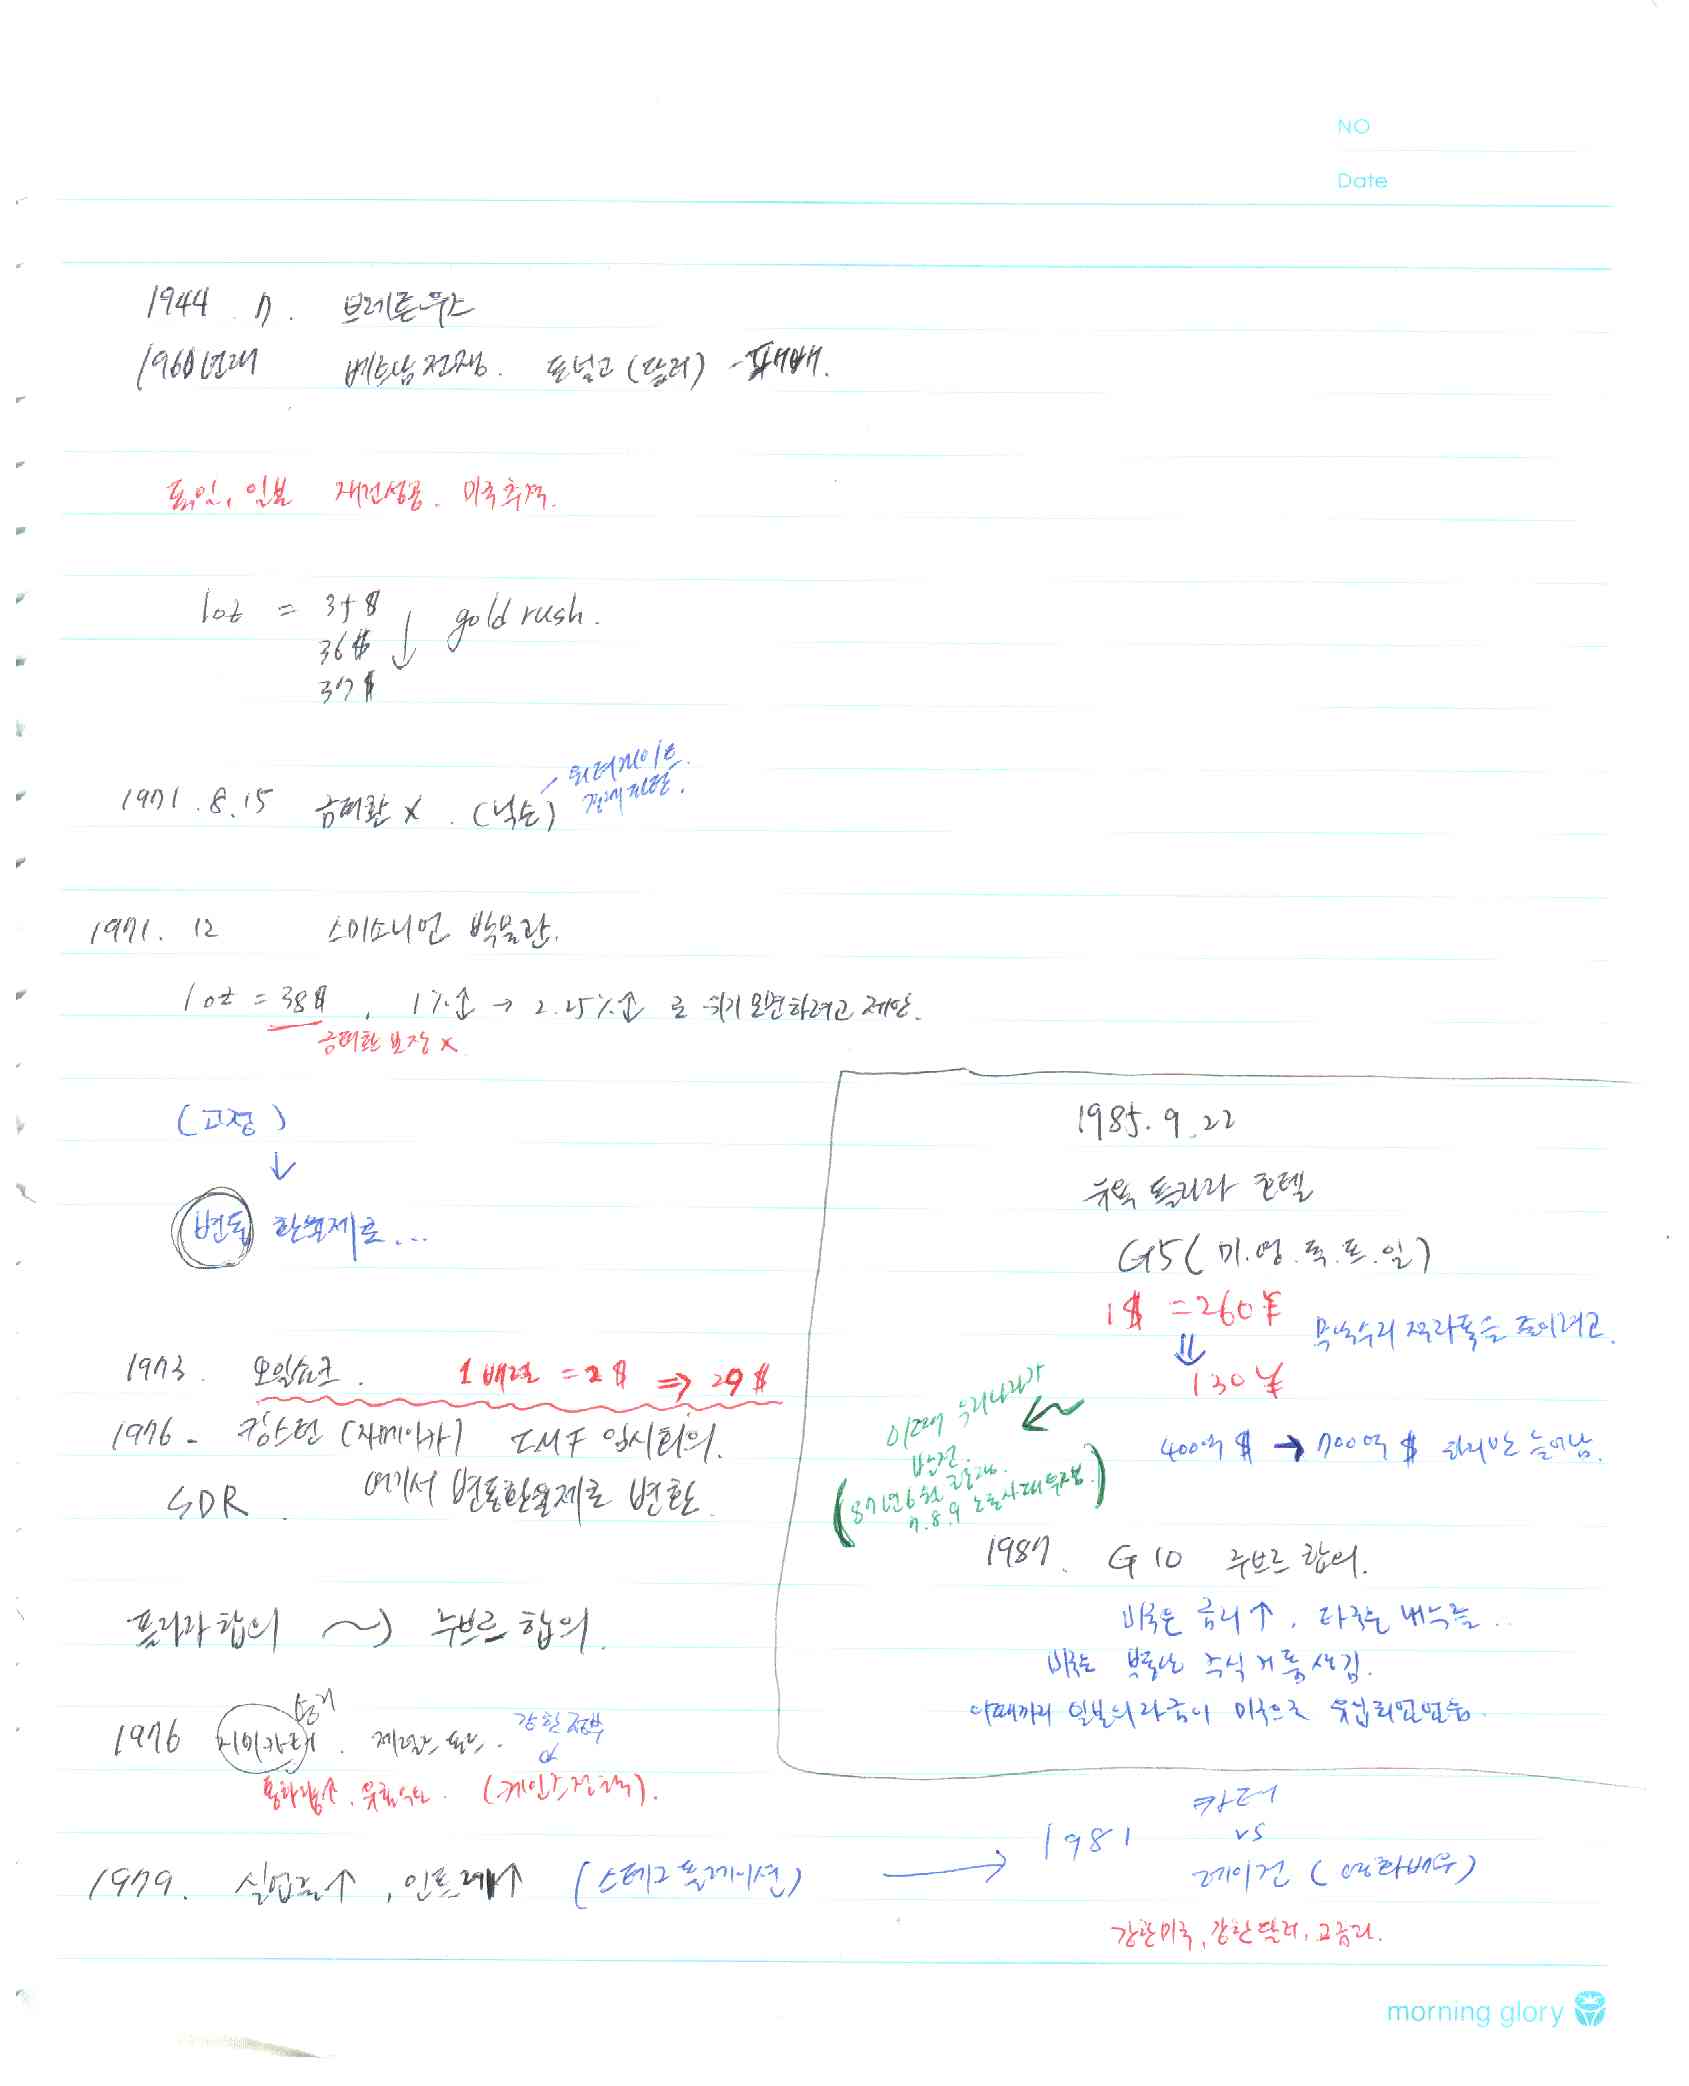 NO
Date
1944 . 7 . 브레튼우즈
1960년대 베트남전쟁. 돈넣고 (달러) 패배.
독일, 일본 재건성공. 미국추격.
1oz = 35$
36$
37$
gold rush.
워터게이트
1971. 8. 15 금태환 x . (닉슨)
1971. 12 스미소니언 박물관.
1oz = 38$ , 1%⇧ → 2.25%⇧ 로 위기모면하려고 제안.
금태환 보장 x
(고정)
↓
변동 환율제로...
1973. 오일쇼크. 1배럴 = 2$ ⇒ 29$
1976 - 킹스턴 (자메이카) IMF 임시회의.
SDR. 여기서 변동환율제로 변환.
프라자 합의 ~> 루브르 합의.
강한 정부
1976 지미카터.
통화량↑. (케인즈 정책).
1979. 실업률↑, 인플레↑ (스테그플레이션) →
1985. 9. 22
뉴욕 플라자 호텔
G5 (미.영.독.프.일)
1$ = 260¥
⇓
130¥
무역수지 적자폭을 줄이려고.
400억 $ → 700억 $ 적자만 늘어남
이때 우리나라가
반전.
87년6월
7.8.9 노동자대투쟁.
1987. G10 루브르 합의.
미국은 금리↑, 타국은 낮추는...
미국은 부동산 주식 거품 생김.
이때까지 일본의 자금이 미국으로 유입되었었음.
1981
카터
vs
레이건 (영화배우)
강한미국, 강한달러, 고금리.
morning glory